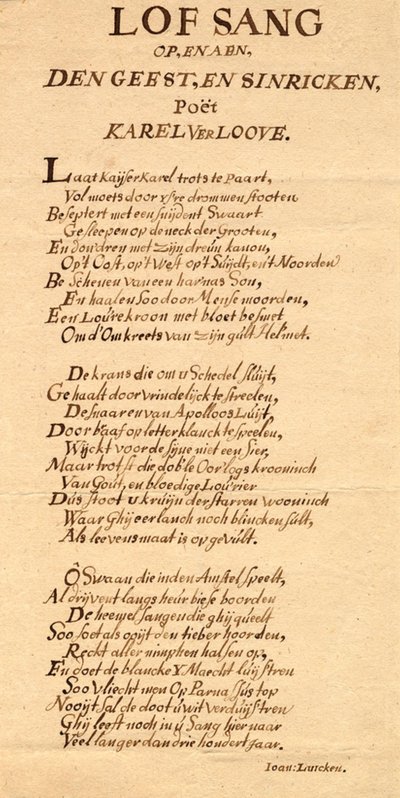 LOF SANG
OP, EN AEN,
DEN GEEST, EN SINRICKEN,
Poët
KAREL VER LOOVE.
Laat Kayser Karel trots te Paart,
Vol moets door ysre drommen stooten
Beseptert met een snijdent Swaart
Gesleepen op de neck der Grooten,
En dond'ren met zijn dreún kanon,
Op't Oost, op't West op't Súijdt, en't Noorden
Be Schenen van een har'nas Son,
En haalen soo door Mense moorden,
Een Loúre kroon met bloet besmet
Om d'Omkreets van zijn gúlt Helmet.
De krans die om ú Schedel slúijt,
Gehaalt door vrindelijck te streelen,
De snaaren van Apolloos Lúijt,
Door braaf op letterklanck te speelen,
Wijckt voor de sijne niet een sier,
Maar trotst die doble Oorlogs krooninch
Van Goút, en bloedige Loúrier
Dús stoot ú krúijn der starren wooninch
Waar Ghij eerlanch noch blincken súlt,
Als leevens maat is op gevúlt.
Ô Swaan die in den Amstel speelt,
Al drijvent langs heúr biese boorden
De heemel sangen die ghij qúeelt
Soo soet als ooijt den tieber hoorden,
Reckt aller nimphen halsen op,
En doet de blancke Y Maecht lúijstren
Soo vliecht men Op Parnassús top
Nooijt sal de doot ú wit verdúijstren
Ghij leeft noch in ú Sang hier naar
Veel langer dan drie hondert jaar.
Ioan: Luicken.